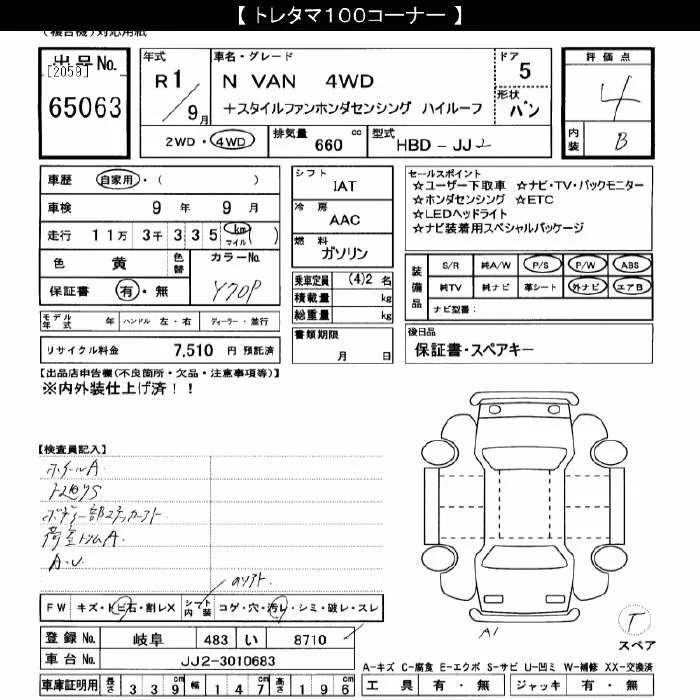 【 トレタマ100コーナー 】
(複合機)対応用紙
出品No.
[2059]
65063
年式
R1/9月
車名・グレード
N VAN 4WD
+スタイルファンホンダセンシング ハイルーフ
ドア
5
形状
バン
評価点
4
内装
B
2WD・4WD
排気量
660 cc
型式
HBD-JJ2
車歴 自家用・( )
車検 9年 9月
走行 11万 3千 335 km マイル ( )
色 黄 色替
カラーNo.
Y70P
保証書 有・無
モデル年式 年 ハンドル 左・右 ディーラー・並行
リサイクル料金 7,510 円 預託済
シフト
IAT
冷房
AAC
燃料
ガソリン
乗車定員 (4)2 名
積載量 kg
総重量 kg
書類期限
月 日
セールスポイント
☆ユーザー下取車 ☆ナビ・TV・バックモニター
☆ホンダセンシング ☆ETC
☆LEDヘッドライト
☆ナビ装着用スペシャルパッケージ
装備品
S/R 純A/W P/S P/W ABS
純TV 純ナビ 革シート 外ナビ エアB
ナビ型番:
後日品
保証書・スペアキー
【出品店申告欄(不良箇所・欠品・注意事項等)】
※内外装仕上げ済!!
【検査員記入】
ホイールA
荷室トリムA.
A・U
FW キズ・トビ石・割レX シート内装 コゲ・穴・汚レ・シミ・破レ・スレ
登録No. 岐阜 483 い 8710
車台No. JJ2-3010683
車庫証明用 長さ 339cm 幅 147cm 高さ 196cm
A1
T
スペア
A-キズ C-腐食 E-エクボ S-サビ U-凹ミ W-補修 XX-交換済
工具 有・無 ジャッキ 有・無